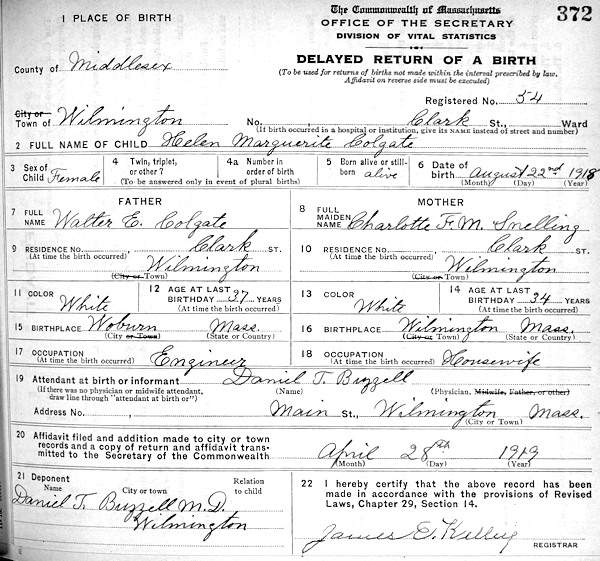 1 PLACE OF BIRTH
The Commonwealth of Massachusetts
372
OFFICE OF THE SECRETARY
DIVISION OF VITAL STATISTICS
DELAYED RETURN OF A BIRTH
County of Middlesex
(To be used for returns of births not made within the interval prescribed by law.
Affidavit on reverse side must be executed)
Registered No. 54
City or
Town of Wilmington No. , Clark St., Ward
(If birth occurred in a hospital or institution, give its NAME instead of street and number)
2 FULL NAME OF CHILD Helen Marguerite Colgate
3 Sex of Child Female
4 Twin, triplet, or other?
4a Number in order of birth
(To be answered only in event of plural births)
5 Born alive or still-born alive
6 Date of birth August 22nd 1918
(Month) (Day) (Year)
FATHER
MOTHER
7 FULL NAME Walter E. Colgate
8 FULL MAIDEN NAME Charlotte F. M. Snelling
9 RESIDENCE NO. , Clark ST.
(At time the birth occurred)
Wilmington
(City or Town)
10 RESIDENCE NO. , Clark ST.
(At time the birth occurred)
Wilmington
(City or Town)
11 COLOR White
12 AGE AT LAST BIRTHDAY 37 YEARS
(At time the birth occurred)
13 COLOR White
14 AGE AT LAST BIRTHDAY 34 YEARS
(At time the birth occurred)
15 BIRTHPLACE Woburn Mass.
(City or Town) (State or Country)
16 BIRTHPLACE Wilmington Mass.
(City or Town) (State or Country)
17 OCCUPATION Engineer
(At time the birth occurred)
18 OCCUPATION Housewife
(At time the birth occurred)
19 Attendant at birth or informant Daniel T. Buzzell
(If there was no physician or midwife attendant, draw line through "attendant at birth or")
(Name) (Physician, Midwife, Father, or other)
Address No. , Main St., Wilmington Mass.
(City or Town)
20 Affidavit filed and addition made to city or town
records and a copy of return and affidavit trans-
mitted to the Secretary of the Commonwealth
April 28th 1919
(Month) (Day) (Year)
21 Deponent
Name City or town Relation to child
Daniel T. Buzzell M.D.
Wilmington
22 I hereby certify that the above record has been
made in accordance with the provisions of Revised
Laws, Chapter 29, Section 14.
James E. Kelley
REGISTRAR